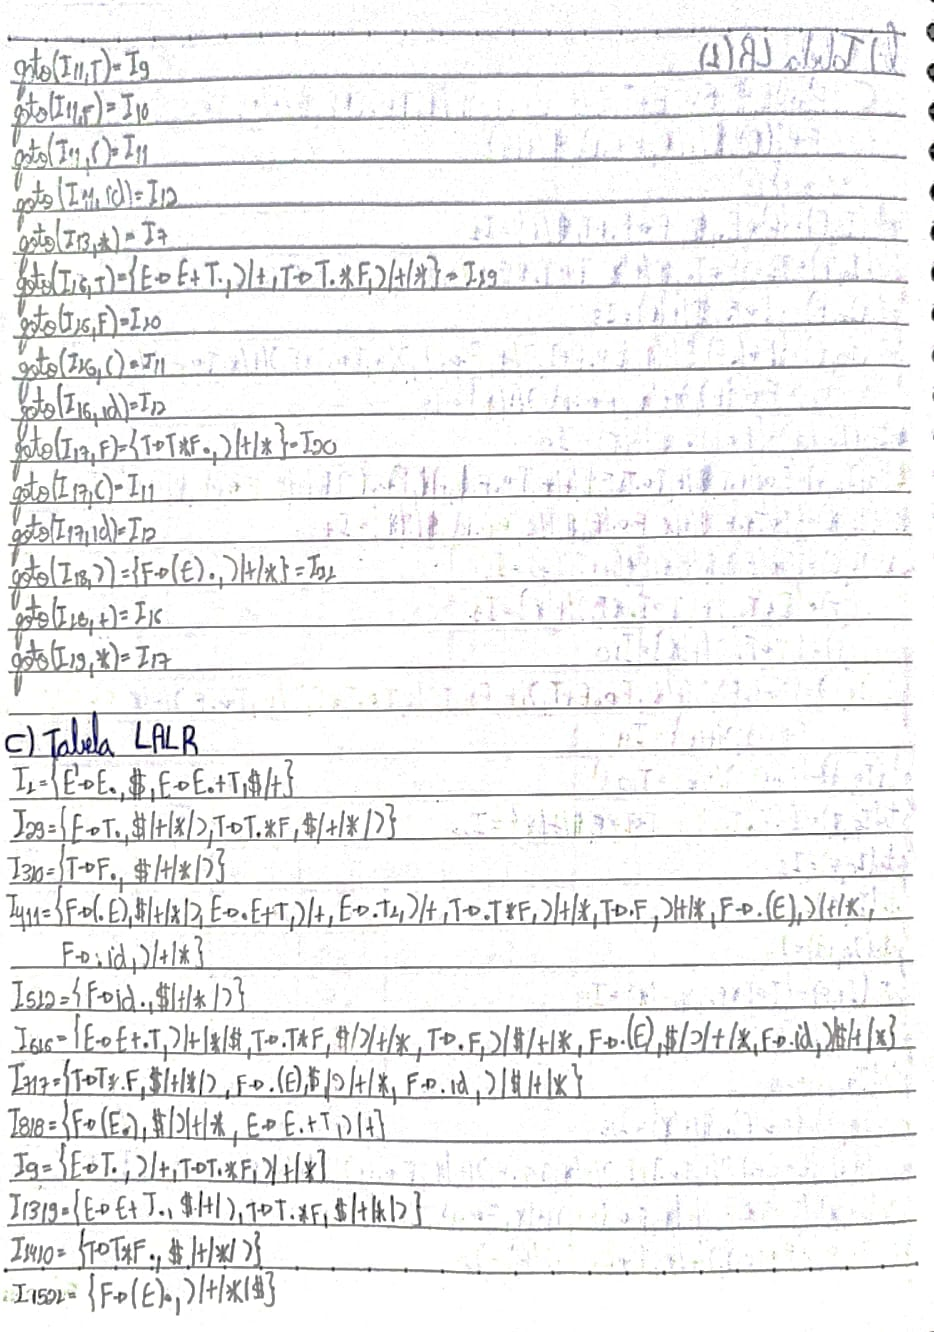 goto(I11,T)=I9
goto(I11,F)=I10
goto(I11,()=I11
goto(I11,id)=I12
goto(I13,*)=I7
goto(I16,T)={E→E+T.,)/+,T→T.*F,)/+/*}=I19
goto(I16,F)=I10
goto(I16,()=I11
goto(I16,id)=I12
goto(I17,F)={T→T*F.,)/+/*}=I20
goto(I17,()=I11
goto(I17,id)=I12
goto(I18,))={F→(E).,)/+/*}=I21
goto(I18,+)=I16
goto(I19,*)=I17
C) Tabela LALR
I1={E'→E.,$,E→E.+T,$/+}
I29={E→T.,$/+/*/),T→T.*F,$/+/*/)}
I310={T→F.,$/+/*/)}
I411={F→(.E),$/+/*/),E→.E+T,)/+,E→.T,)/+,T→.T*F,)/+/*,T→.F,)/+/*,F→.(E),)/+/*,
F→.id,)/+/*}
I512={F→id.,$/+/*/)}
I616={E→E+.T,)/+/*/$,T→.T*F,$/)/+/*,T→.F,)/$/+/*,F→.(E),$/)/+/*,F→.id,)/$/+/*}
I717={T→T*.F,$/+/*/),F→.(E),$/)/+/*,F→.id,)/$/+/*}
I818={F→(E.),$/)/+/*,E→E.+T,)/+}
I9={E→T.,)/+,T→T.*F,)/+/*}
I1319={E→E+T.,$/+/),T→T.*F,$/+/*/)}
I1410={T→T*F.,$/+/*/)}
I1521={F→(E).,)/+/*/$}